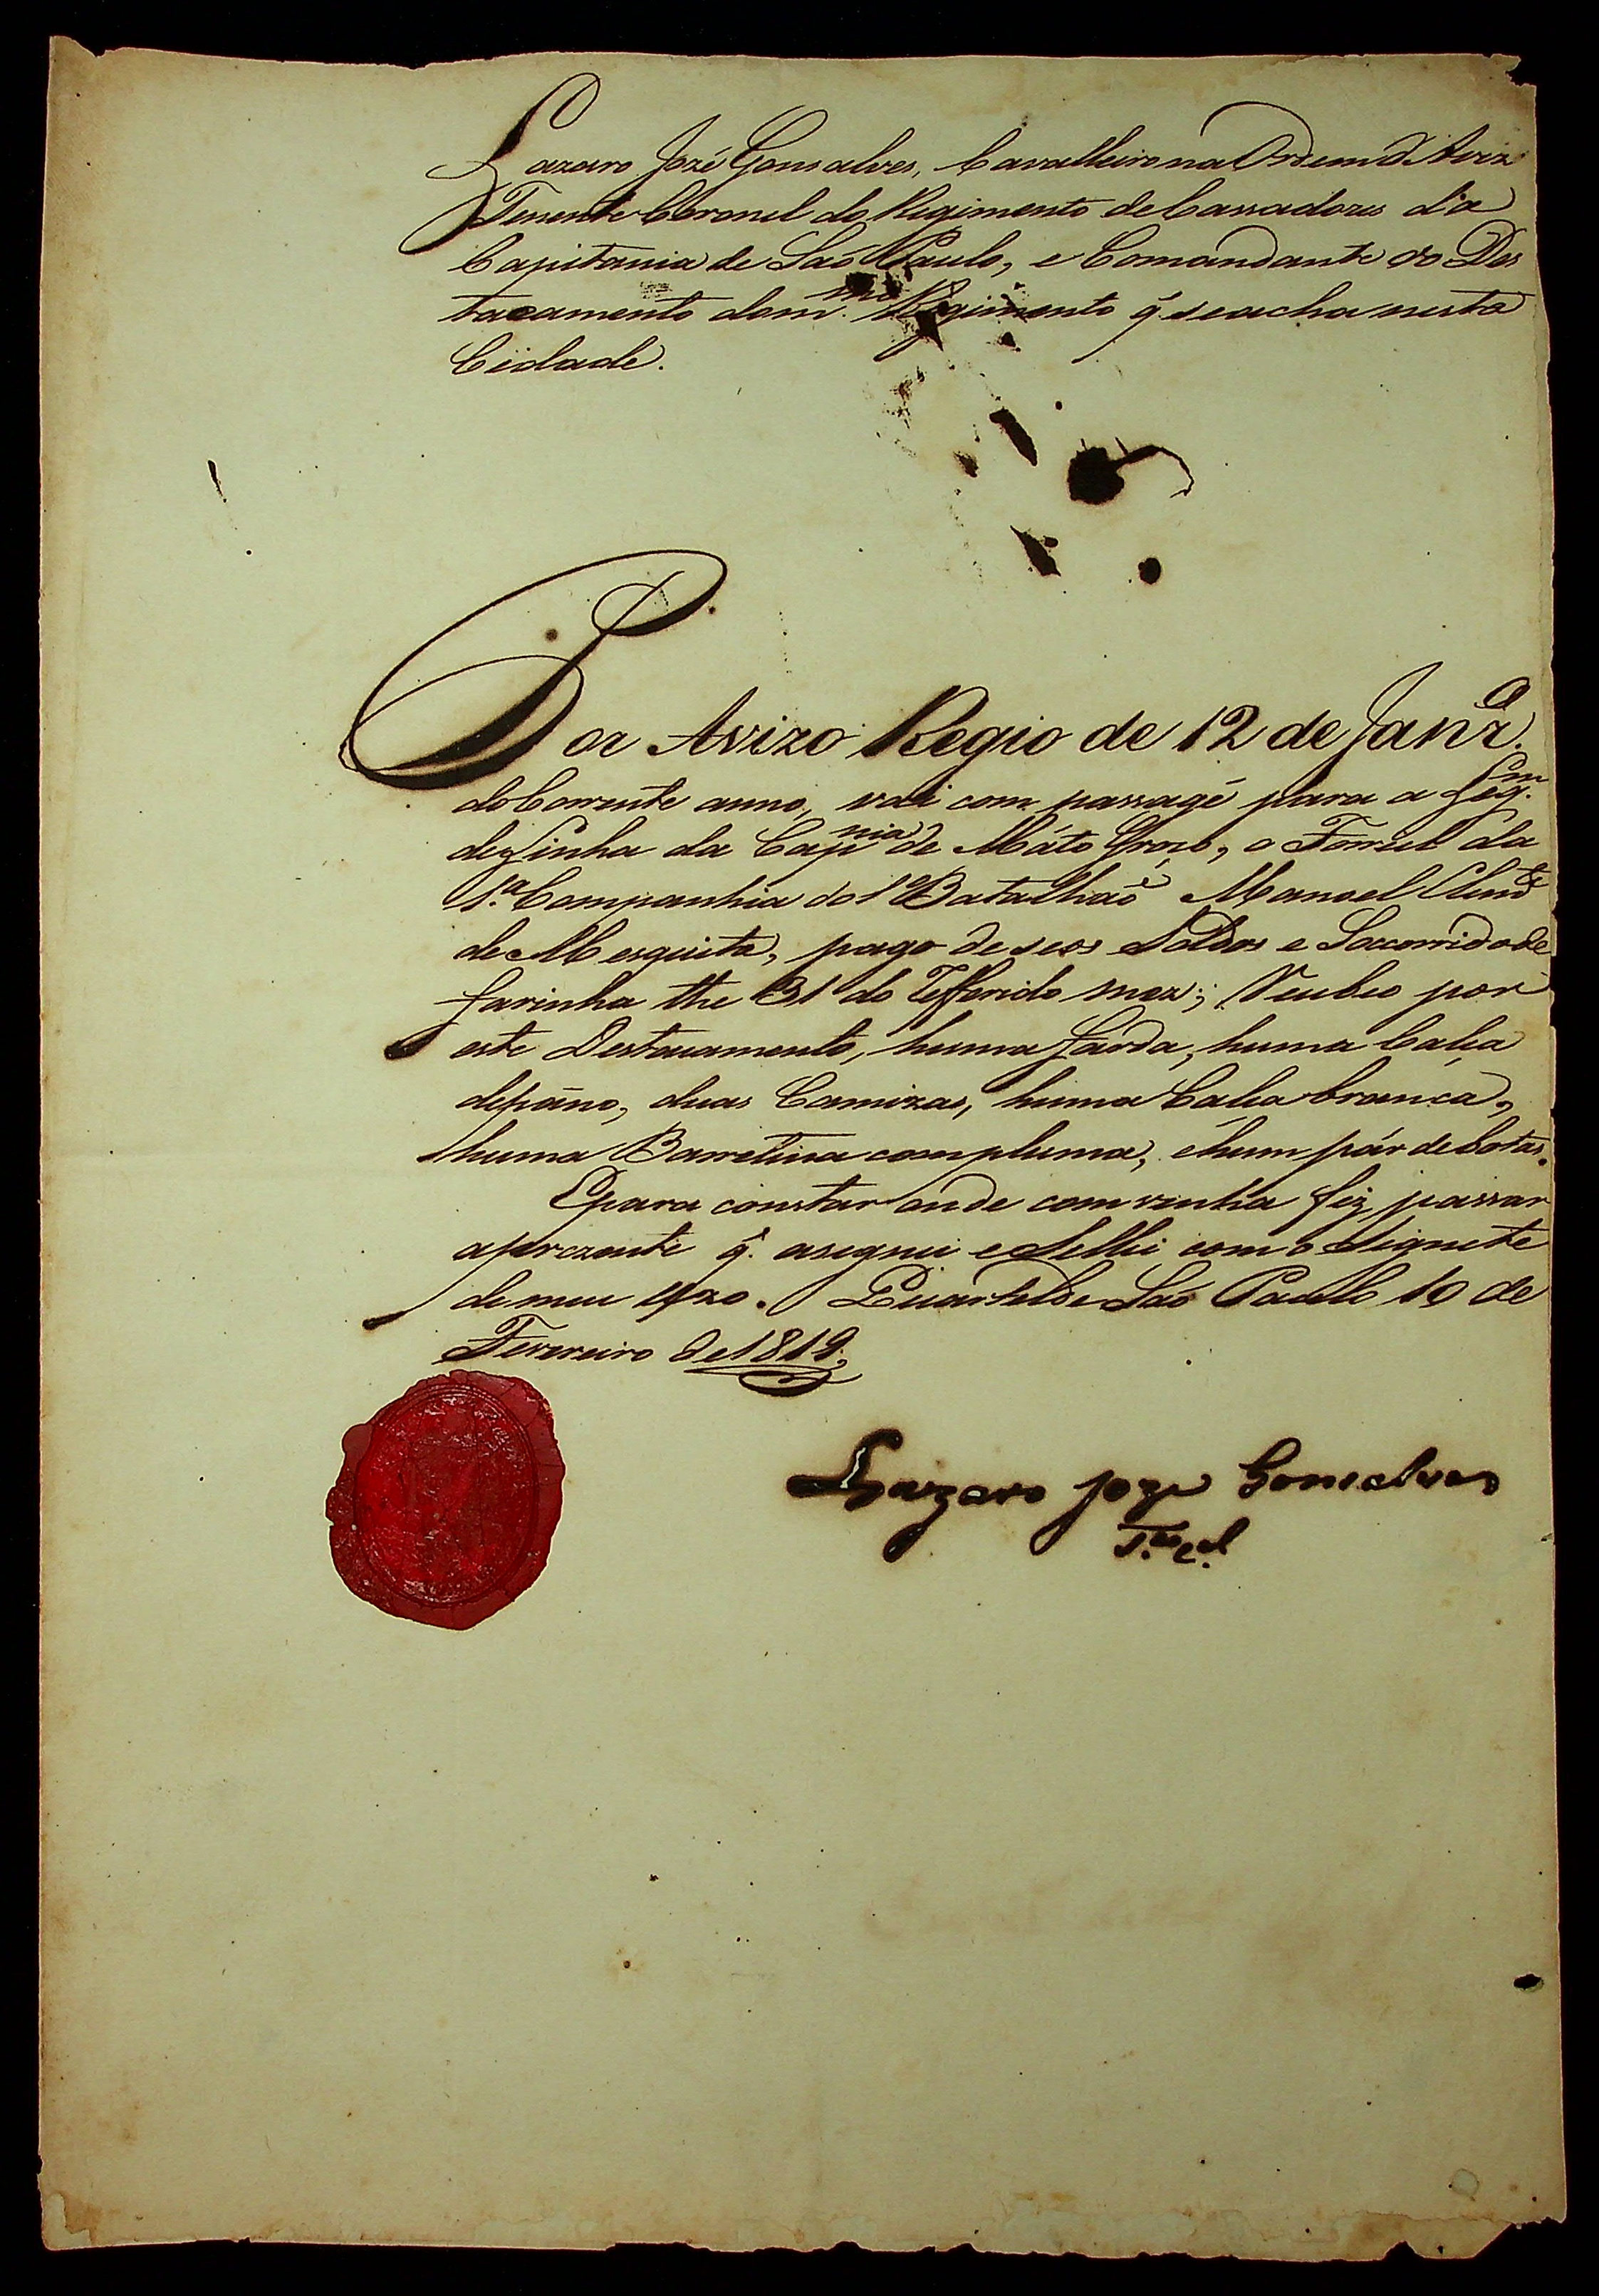 Lazaro Jozé Gonsalves, Cavalleiro na Ordem d'Aviz
Tenente Coronel do Regimento de Cassadores d'a
Capitania de Saõ Paulo, e Comandante do Des
tacamento do m.mo Regimento q̃ se acha nesta
Cidade.
Por Avizo Regio de 12 de Janr.o
do Corrente anno, vai com passagẽ para a Leg.m
de Linha da Capnia de Máto Groço, o Forriel da
1.a Companhia do 1.o Batalhaõ Manoel
de Mesquita, pago de seos Soldos e Socorrido de
farinha the 31 do Refferido mez; Recebeo por
este Destacamento, huma fárda, huma Calça
de páno, duas Camizas, huma Calça branca,
huma Barretina com pluma, e hum pár de botas.
E para constar onde comvinha fiz passar
a prezente q̃. asignei e Sellei com o Signete
de meu uzo. Quartel de Saõ Paulo 10 de
Fevereiro de 1819;
Lazaro Joze Gonsalves
T.e C.el